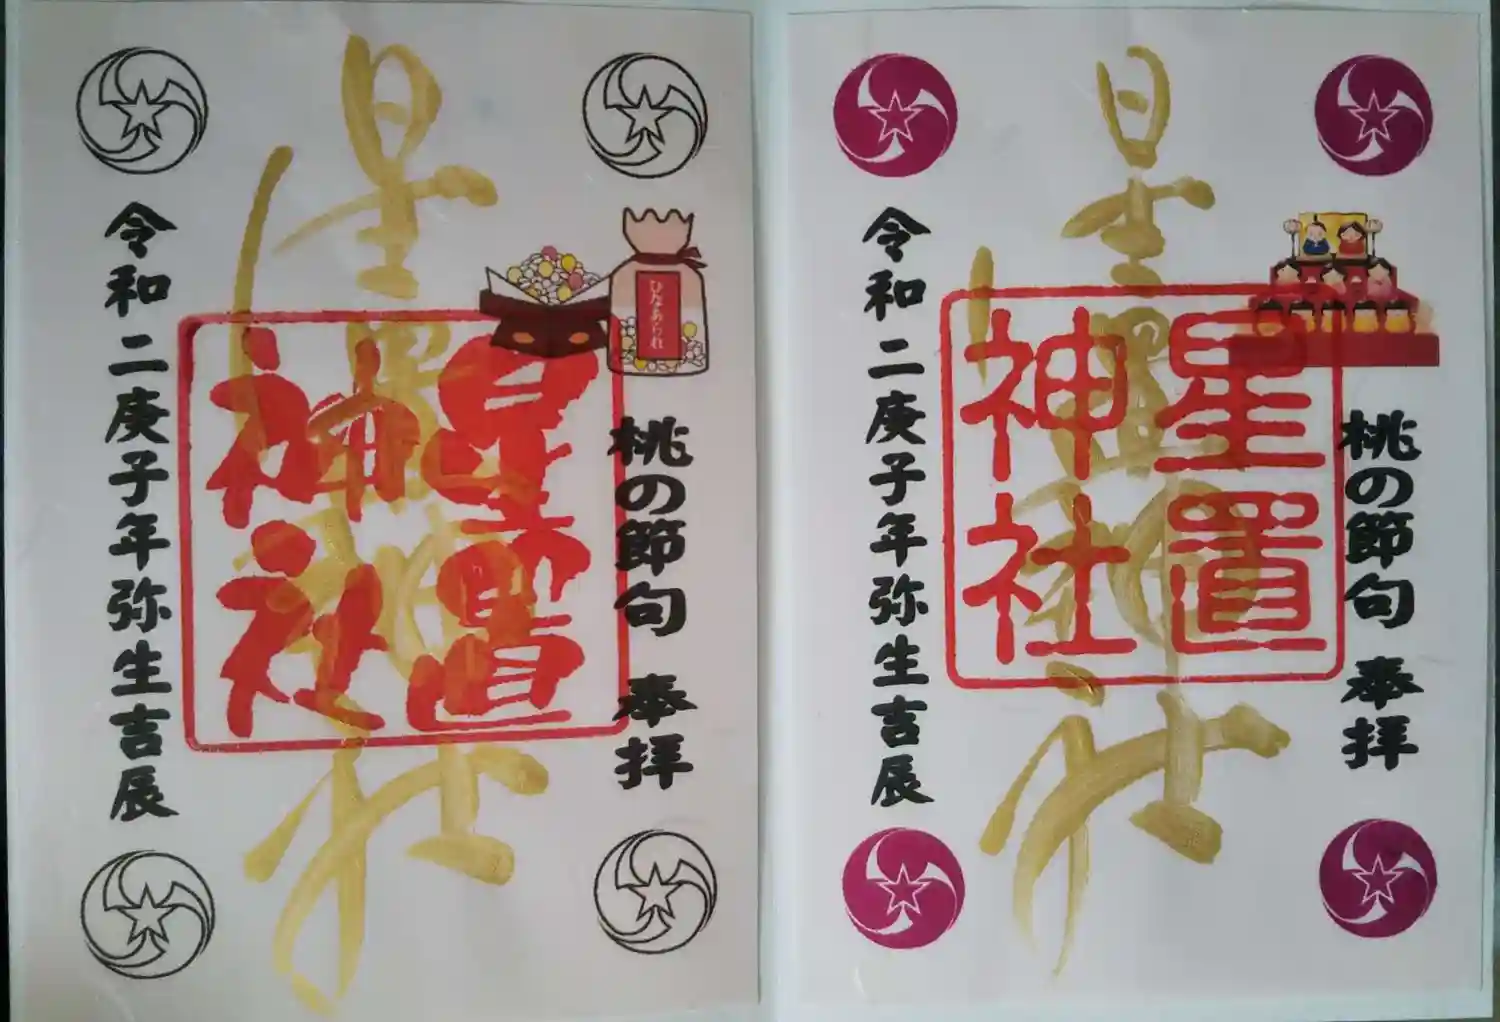 桃の節句 奉拝
ひなあられ
星置神社
星置
神社
令和二庚子年弥生吉辰
桃の節句 奉拝
星置神社
星置
神社
令和二庚子年弥生吉辰